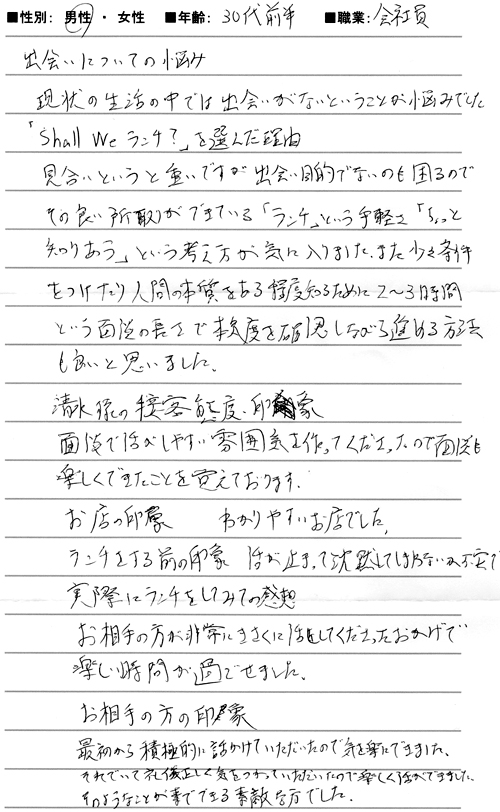 ■性別: 男性 ・ 女性 ■年齢: 30代前半 ■職業: 会社員
出会いについての悩み
現状の生活の中では出会いがないということが悩みでした
「Shall We ランチ?」を選んだ理由
見合いというと重いですが出会い目的でないのも困るので
その良い所取りができている「ランチ」という手軽さ「ちょっと
知りあう」という考え方が気に入りました。また少々条件
をつけたり人間の本質をある程度知るために2〜3時間
という面談の長さで本気度を確認しながら進める方法
も良いと思いました。
清水様の接客態度・印象
面談で話がしやすい雰囲気を作ってくださったので面談も
楽しくできたことを覚えております.
お店の印象 わかりやすいお店でした。
ランチをする前の印象 話が止まって沈黙してしまわないか不安で
実際にランチをしてみての感想
お相手の方が非常にきさくに話してくださったおかげで
楽しい時間が過ごせました。
お相手の方の印象
最初から積極的に話かけていただいたので気を楽にできました。
それでいて礼儀正しく気をつかっていただいたので楽しく話ができました。
そのようなことができる素敵な方でした。